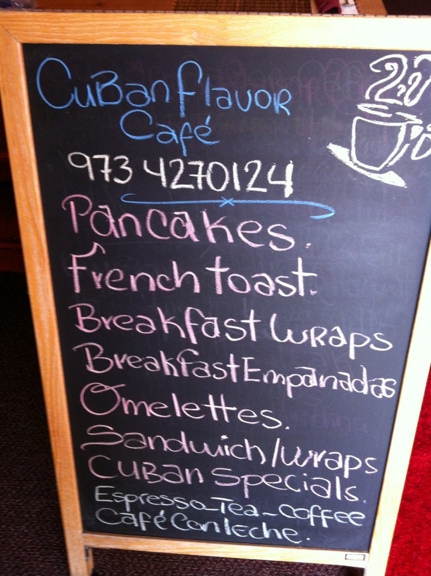 Cuban Flavor
Café
973 4270124
Pancakes.
French toast.
Breakfast Wraps
Breakfast Empanadas
Omelettes.
Sandwich/wraps
Cuban Specials.
Espresso-Tea-Coffee
Café Con Leche.